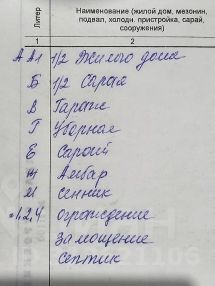 Литер
Наименование (жилой дом, мезонин,
подвал, холодн. пристройка, сарай,
сооружения)
1 2
А А1 1/2 Жилого дома
Б 1/2 Сарая
В Гараж
Г Уборная
Е Сарай
Ж Амбар
М Сенник
1,2,4 ограждение
замощение
септик